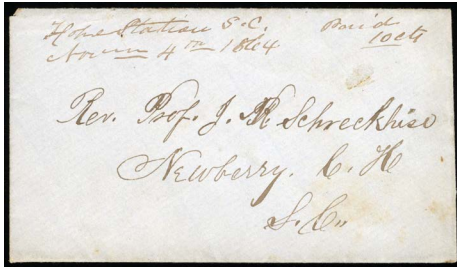 Hope Station S.C. Paid
Novem 4th 1864 10cts
Rev. Prof. J. R Schreckhise
Newberry. C. H
S. C.